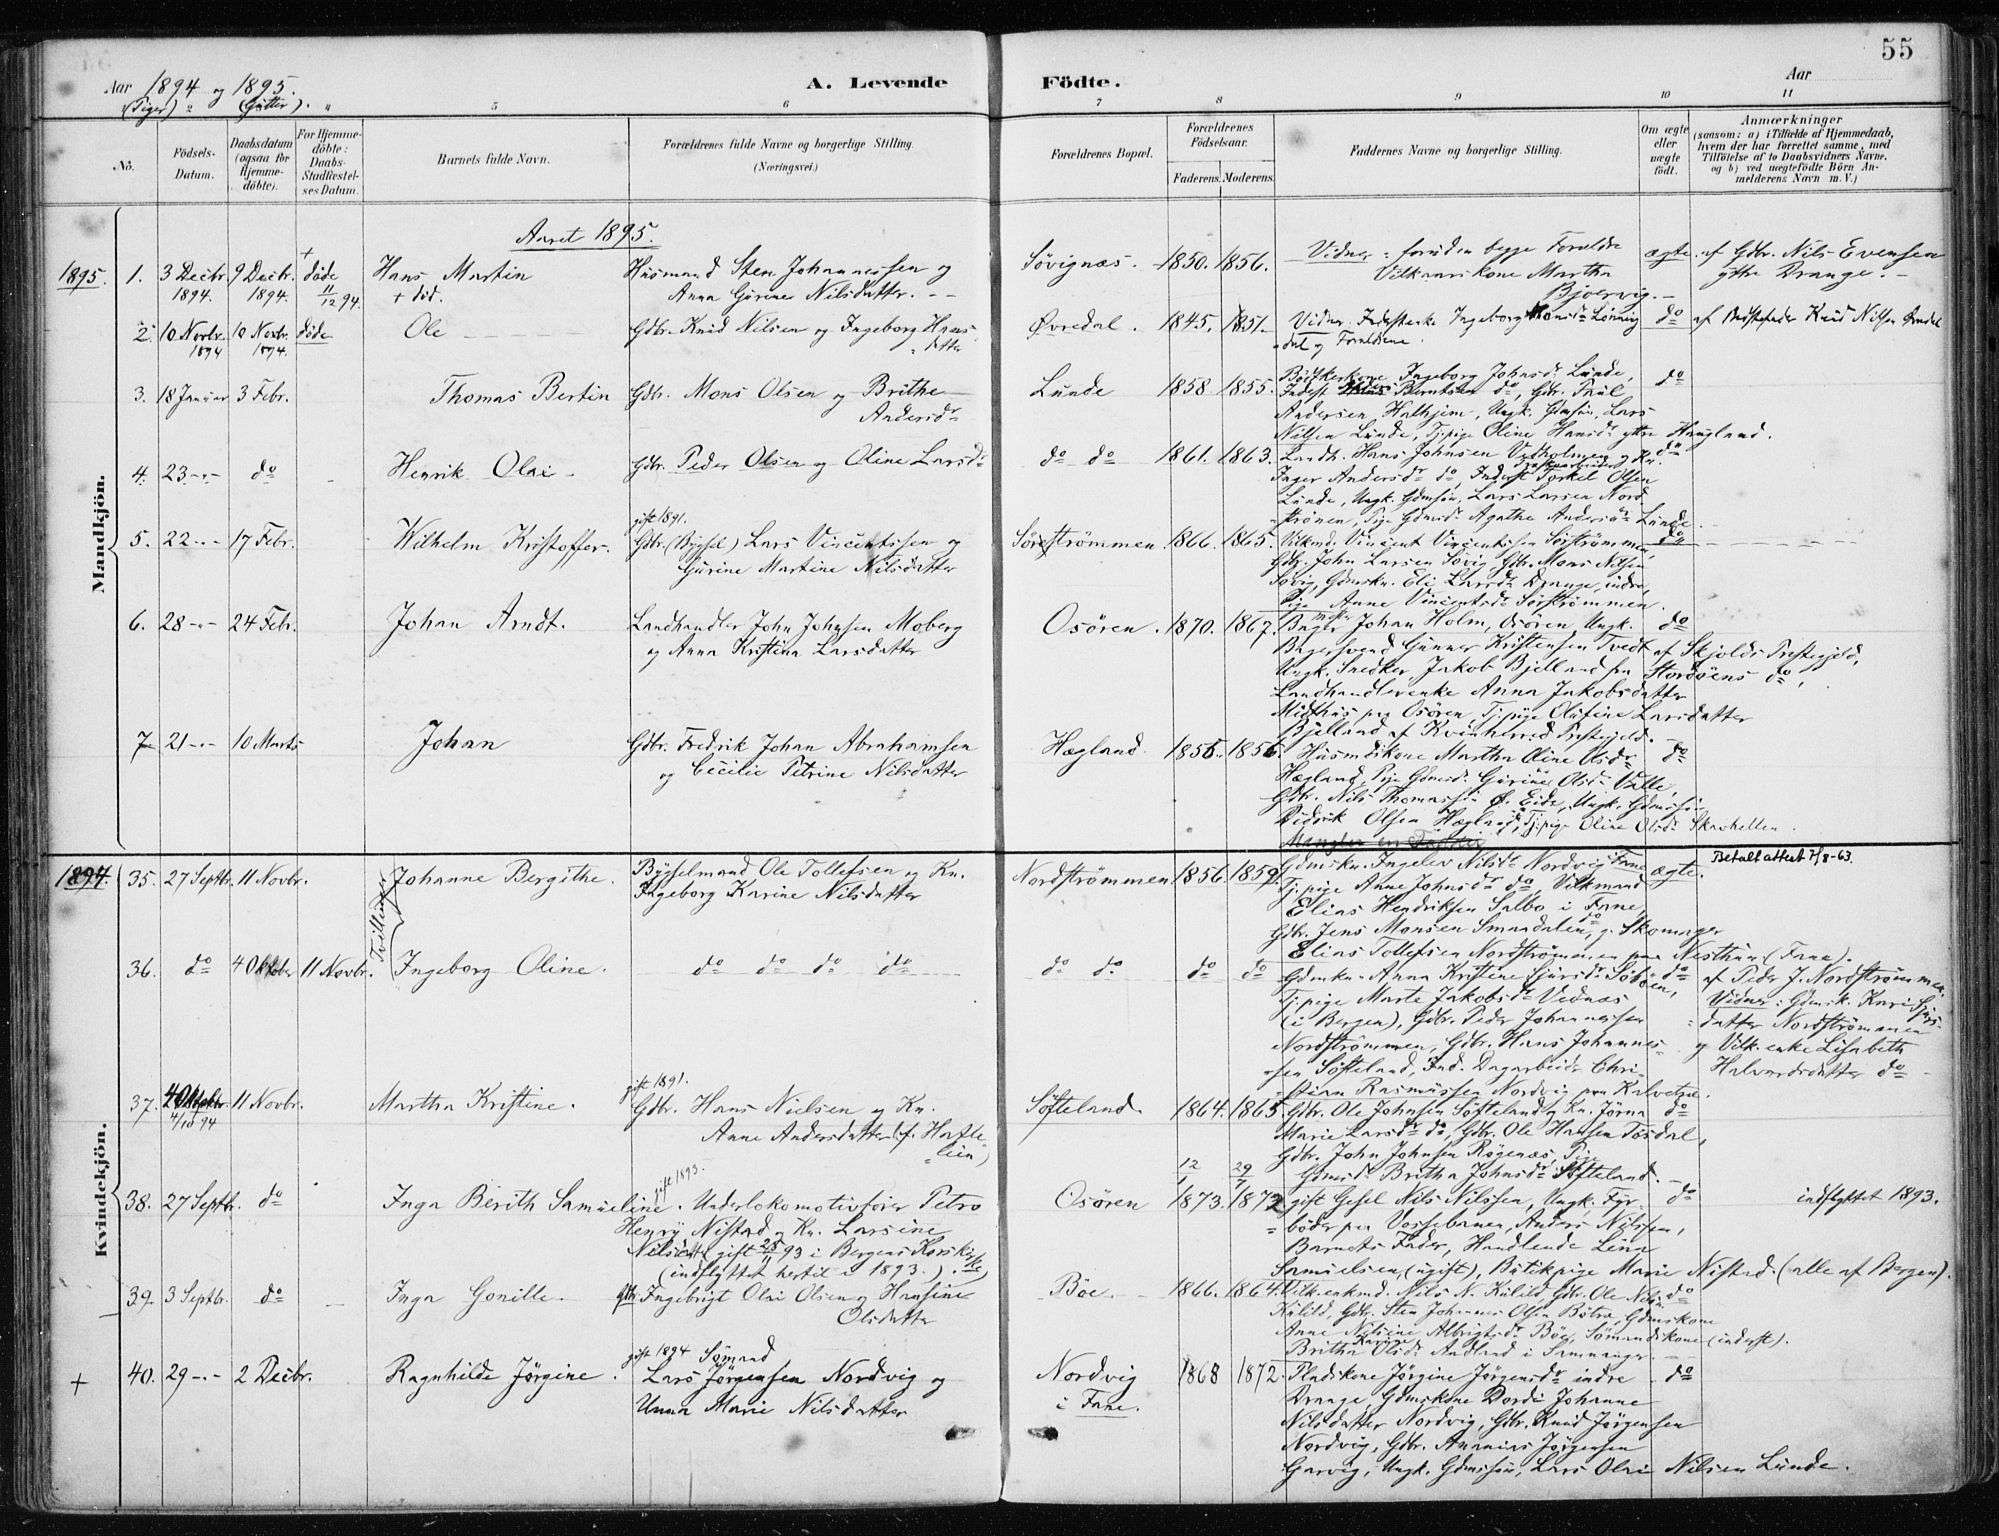 55
Aar 1894 og 1895.
(Piger) " (Gutter). "
A. Levende Födte.
Aar
5 6 7 8 9 10 11
No.
Födsels-Datum.
Daabsdatum (ogsaa for Hjemme-döbte).
For Hjemme-döbte: Daabs-Stadfæstel-ses Datum.
Barnets fulde Navn.
Forældrenes fulde Navne og borgerlige Stilling.
(Næringsvei.)
Forældrenes Bopæl.
Forældrenes Födselsaar.
Faderens. Moderens.
Faddernes Navne og borgerlige Stilling.
Om ægte eller uægte födt.
Anmærkninger
(saasom: a) i Tilfælde af Hjemmedaab, hvem der har forrettet samme, med Tilföielse af to Daabsvidners Navne, og b) ved uægtefödte Börn An-melderens Navn m. V.)
Mandkjön.
Aaret 1895.
1895. 1. 3 Decbr. 1894. 9 Decbr. 1894. + döde 11/12 94. Hans Martin + död. Husmand Sten Johannessen og Anna Gurine Nilsdatter. Søvignæs. 1850. 1856. Vidner: foruden begge Forældre Vilkaarskone Martha Bjørvig. ægte. af Gdbr. Nils Evensen ytre Drange.
2. 10 Novbr. 1894 10 Novbr. 1894. döde Ole Gdbr. Knud Nilsen og Ingeborg Hans-datter Øvredal. 1845. 1851. Vidner Ingeborg Lønning-dal og Forældrene. do af Knud Nilsen
3. 18 Januar 3 Febr. Thomas Bertin Gdbr. Mons Olsen og Brithe Andersdr. Lunde 1858 1855. Bödkerkone Ingeborg Johnsdr. Lunde, Inderst Berntsen do, Gdbr. Paul Andersen Halhjem, Ungk. Gdmsön, Lars Nilsen Lunde, Tj.pige Oline Hansdr. ytre Haugland. do
4. 23 - - do Henrik Olai Gdbr. Peder Olsen og Oline Larsdr. do do 1861. 1863. Landh. Hans Johnsen Vedholmen og Kn. Inger Andersdr. do, Inderst Torkel Olsen Lunde, Ungk. Gdmsön, Lars Larsen Nord-strönen, Pige Gdmsd. Agathe Andersdr. Lunde. do
5. 22 - - 17 Febr. Wilhelm Kristoffer. gift 1891. Gdbr. (Bygsel) Lars Vincentssen og Gurine Martine Nilsdatter Sørstrømmen. 1866. 1865. Vilkmd. Vincent Vincentssen Sørstrømmen, Gdbr. John Larsen Søvig, Gdbr. Mons Nilsen Søvig, Gdmskn. Eli Larsdr. Drange, indre, Pige Anne Vincentsdr. Sørstrømmen. do
6. 28 - - 24 Febr. Johan Arndt. Landhandler John Johnsen Moberg og Anna Kristina Larsdatter Osören. 1870. 1867. Bager Johan Holm, Osören, Ungk. Bagersvend Gunner Kristensen Tvedt af Skjolds Præstegjeld, Ungk. Snedker, Jakob Bjelland fra Stordöens do, Landhandlerenke Anna Jakobsdatter Midthus paa Osören, Tj.pige Olufine Larsdatter Bjelland af Kvinherred Præstegjeld. do
7 21 - - 10 Marts Johan Gdbr. Fredrik Johan Abrahamsen og Cecilie Petrine Nilsdatter Hægland. 1855. 1856. Husmdskone Martha Oline Olsdr. Hægland, Pige Gdmsd. Gurine Olsdr. Valle, Gdbr. Nils Thomassen Ø. Eide, Ungk. Gdmssön Didrik Olsen Hægland, Tj.pige Oline Olsdr. Skrohellen. Mangler en Fadder do
Kvindekjön.
1894. 35. 27 Septbr. 11 Novbr. Tvillinger. Johanne Bergithe. Bygselmand Ole Tollefsen og Kn. Ingeborg Karine Nilsdatter Nordströmmen 1856. 1859. Gdmskn. Ingelev Nilsdr. Nordvig Fane, Tj.pige Anne Johnsdr. do, Vilkmand Elias Hendriksen Salbo i Fane, Gdbr. Jens Monsen Smaadalen, do, Skomager Elias Tollefsen Nordströmmen paa Nesttun (Fane). ægte. Betalt attest 7/8-63.
36. do 4 Oktober 11 Novbr. Ingeborg Oline. do do do do do do do do Gdmskn. Anna Kristine Sjursdr. Søböen, Tj.pige Marte Jakobsdr. Vidnæs (i Bergen), Gdbr. Peder Johannessen Nordströmmen, Gdbr. Hans Johannes-sen Søfteland, Ind. Dagarbeider Chri-stian Rasmussen Nordvig paa Kalvetræ. do af Peder J. Nordströmmen. Vidner: Gdmsk. Kari Sjurs-datter Nordströmmen og Vilk.enke Lisabeth Halvardsdatter do
37. 4 Oktober 4/10 94 11 Novbr. Martha Kristine. gift 1891. Gdbr. Hans Nielsen og Kn. Anne Andersdatter (f. Hatle-lien) Søfteland. 1864. 1865. Gdbr. Ole Johnsen Søfteland og Kn. Jörna Marie Larsdr. do, Gdbr. Ole Hansen Tøsdal, Gdbr. John Johnsen Røgenæs, Pige Gdmsd. Britha Johnsdr. Søfteland. do
38. 27 Septbr. do Inga Berith Samueline. gift 1893. Underlokomotivfører Petro Henry Nistad og Kn. Larsine Nilsdatt. (gift 25/11 93 i Bergens Korskirke) (indflyttet hertil i 1893.) Osören 12/1 1873. 29/7 1872 gift Gesel Nils Nilssen, Ungk. Fyr-böder paa Vossebanen, Anders Nilssen, Barnets Fader, Handlende Lina Samuelsen, (ugift), Butikpige Marie Nistad. (alle af Bergen). do indflyttet 1893.
39. 3 Septbr. do Inga Gonille Gdbr. Ingebrigt Olai Olsen og Hansine Olsdatter Böe. 1866. 1864. Vilk.enkmd. Nils N. Kulild, Gdbr. Ole Nilsen Kulild, Gdbr. Sten Johannes Olsen, Gdmskone Anne Nilsine Albrigtsdr. Böe, Sömandskone (inderst). Britha Karine Olsdr. Aadland i Samnanger. do
+ 40. 29 - - 2 Decbr. Ragnhilde Jørgine. gift 1894 Sömand Lars Jørgensen Nordvig og Unna Marie Nilsdatter Nordvig i Fane. 1868 1872. Pladskone Jørgine Jørgensdr. indre Drange, Gdmskone Dordi Johanne Nilsdatter Nordvig, Gdbr. Knud Jørgensen Nordvig, Gdbr. Annanias Jørgensen Garvig, Ungk. Gdmssön, Lars Olai Nilsen Lunde. do